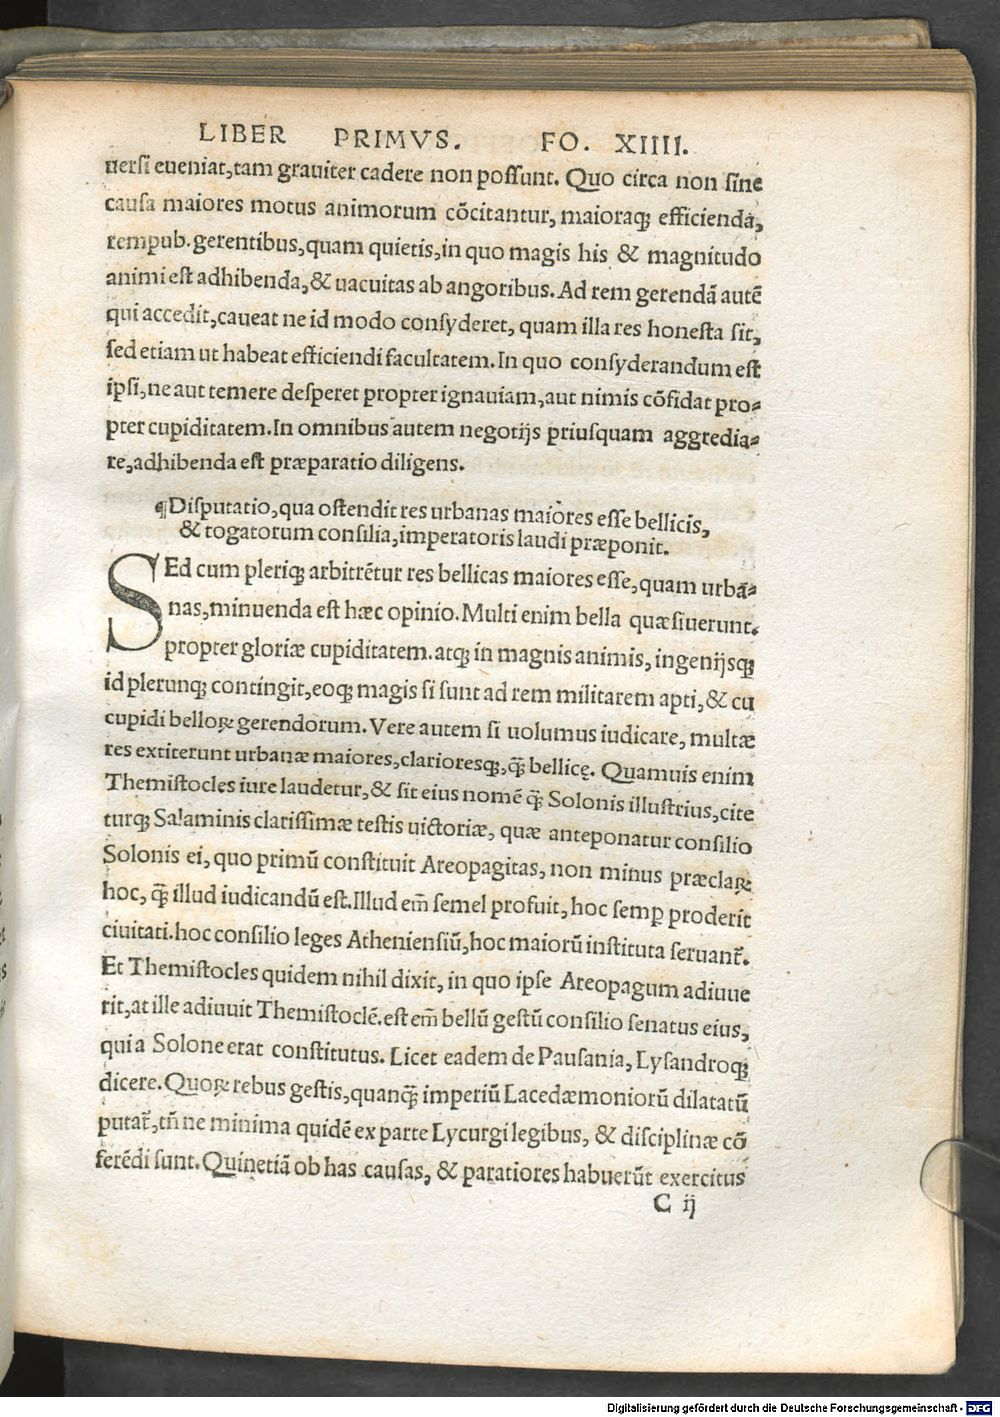 LIBER PRIMVS. FO. XIIII.
uersi eueniat,tam grauiter cadere non possunt. Quo circa non sine
causa maiores motus animorum cōcitantur, maioraqꝫ efficienda,
rempub.gerentibus,quam quietis,in quo magis his & magnitudo
animi est adhibenda,& uacuitas ab angoribus. Ad rem gerendā autē
qui accedit,caueat ne id modo consyderet, quam illa res honesta sit,
sed etiam ut habeat efficiendi facultatem. In quo consyderandum est
ipsi,ne aut temere desperet propter ignauiam,aut nimis cōfidat pro⸗
pter cupiditatem.In omnibus autem negotijs priusquam aggredia⸗
re,adhibenda est præparatio diligens.
¶Disputatio,qua ostendit res urbanas maiores esse bellicis,
& togatorum consilia,imperatoris laudi præponit.
SEd cum pleriqꝫ arbitrētur res bellicas maiores esse,quam urbā⸗
nas,minuenda est hæc opinio. Multi enim bella quæsiuerunt.
propter gloriæ cupiditatem.atqꝫ in magnis animis, ingenijsqꝫ
id plerunqꝫ contingit,eoqꝫ magis si sunt ad rem militarem apti,& cu
cupidi belloꝝ gerendorum. Vere autem si uolumus iudicare, multæ
res extiterunt urbanæ maiores,clarioresqꝫ,q̄ȝ bellicę. Quamuis enim
Themistocles iure laudetur,& sit eius nomē q̄ȝ Solonis illustrius,cite
turqꝫ Salaminis clarissimæ testis uictoriæ, quæ anteponatur consilio
Solonis ei, quo primū constituit Areopagitas, non minus præclaꝝ
hoc, q̄ȝ illud iudicandū est.Illud em̄ semel profuit, hoc semp proderit
ciuitati.hoc consilio leges Atheniensiū,hoc maiorū instituta seruant᷑.
Et Themistocles quidem nihil dixit, in quo ipse Areopagum adiuue
rit,at ille adiuuit Themistoclē.est em̄ bellū gestū consilio senatus eius,
qui a Solone erat constitutus. Licet eadem de Pausania, Lysandroqꝫ
dicere. Quoꝝ rebus gestis,quanq̄ȝ imperiū Lacedæmoniorū dilatatū
putat᷑,tn̄ ne minima quidē ex parte Lycurgi legibus, & disciplinæ cō
ferēdi sunt. Quinetiā ob has causas, & paratiores habuerūt exercitus
C ij
Digitalisierung gefördert durch die Deutsche Forschungsgemeinschaft - DFG